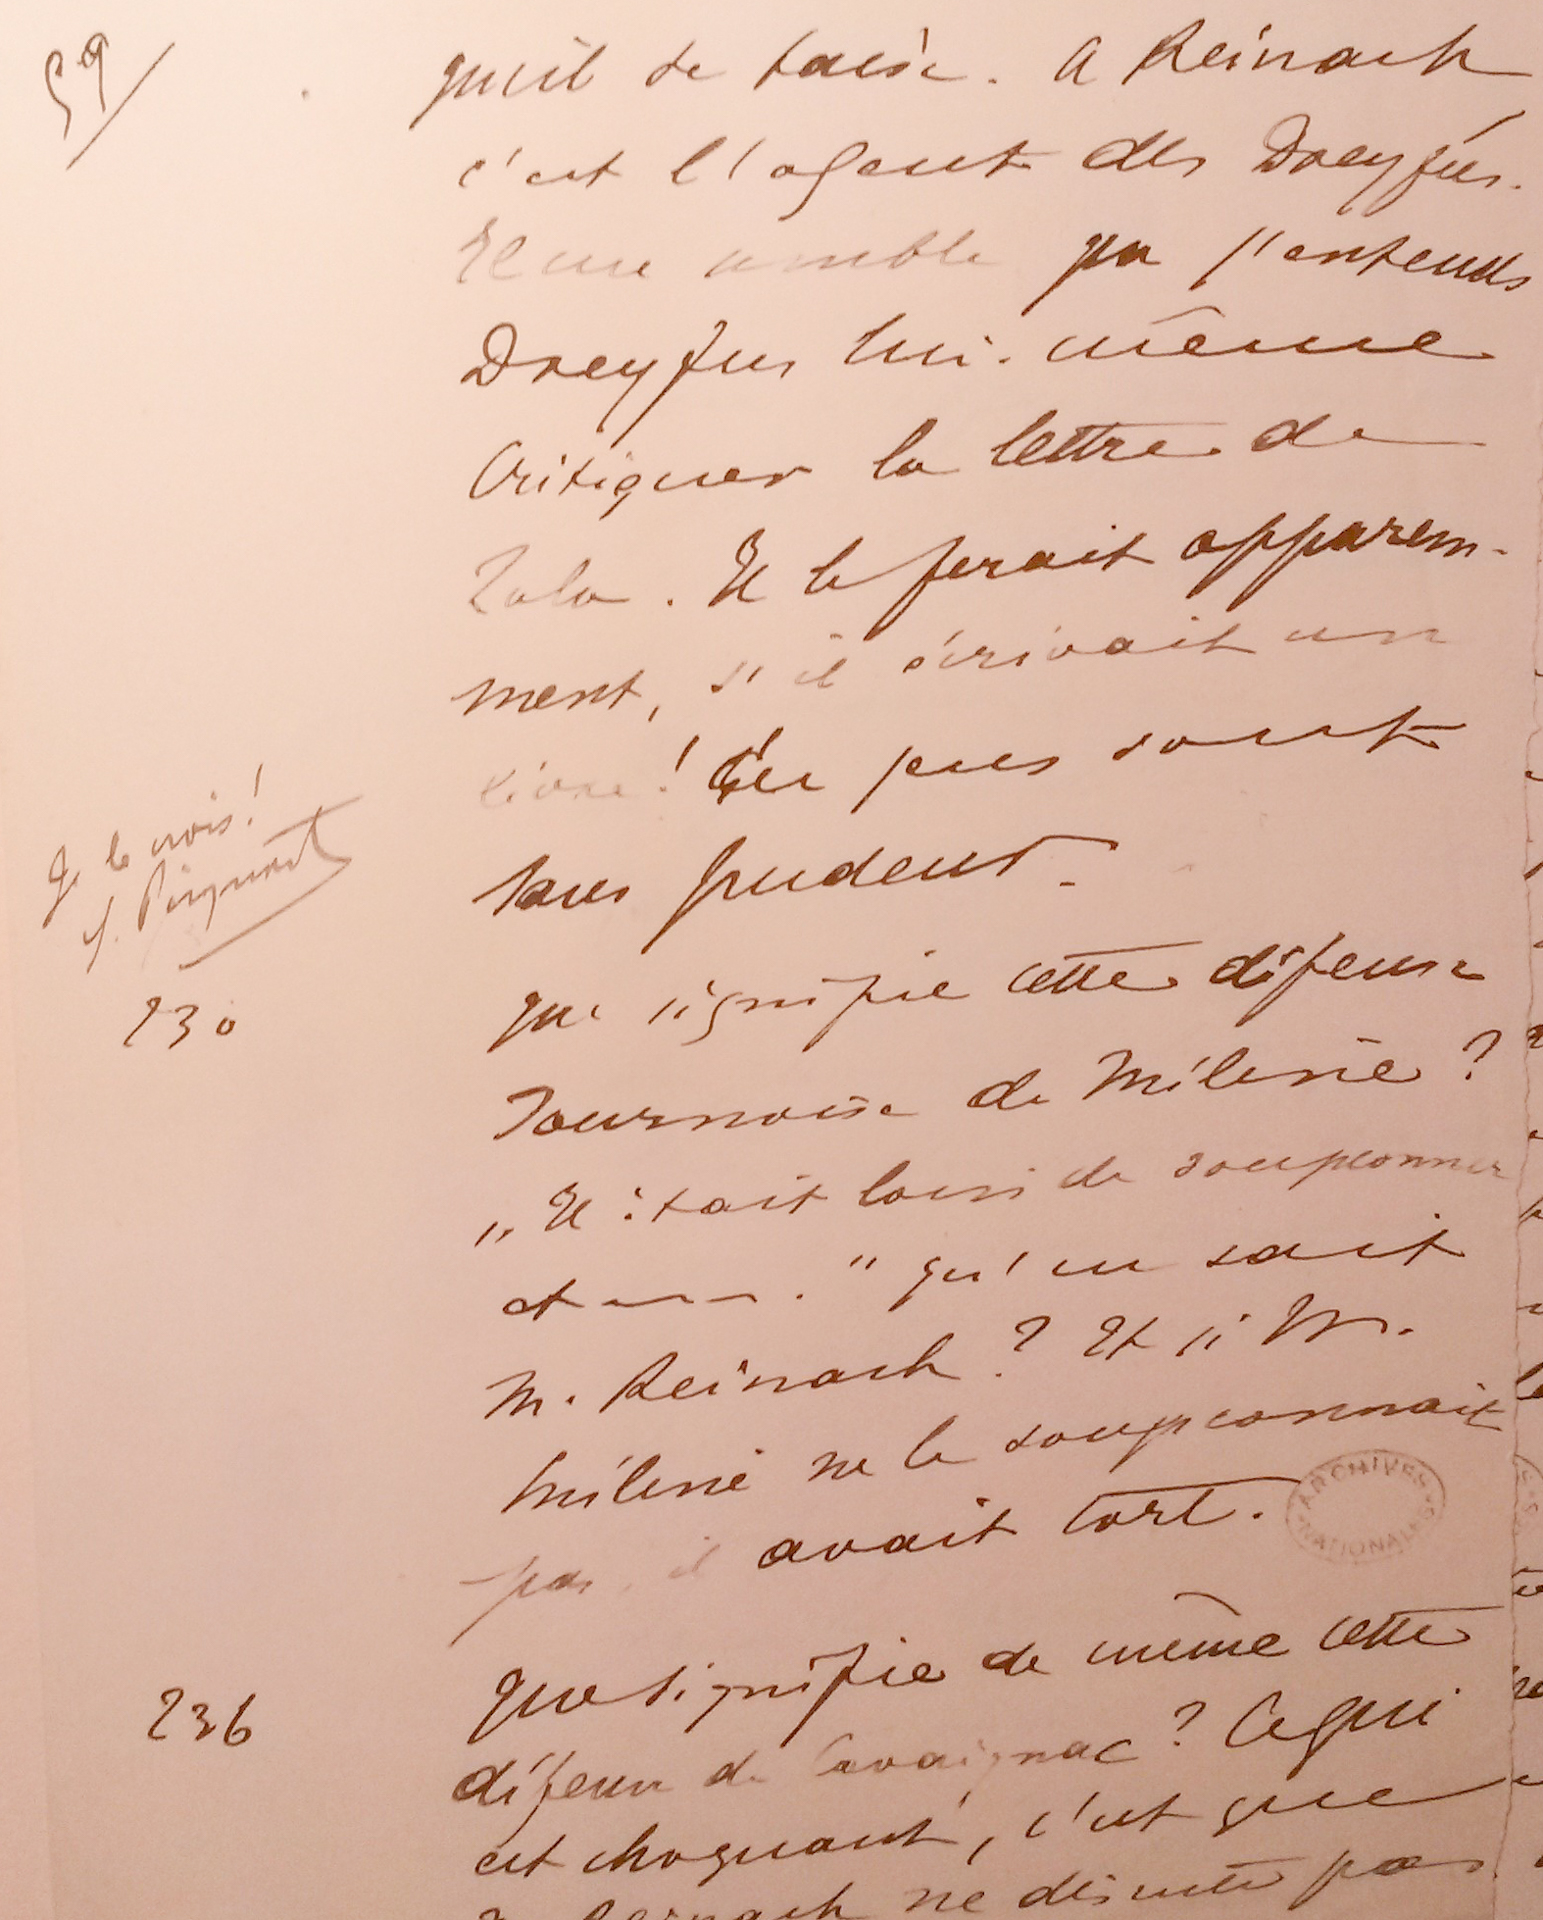 59/
qu'il se taise. A Reinach
c'est l'agent des Dreyfus.
Il me semble que j'entends
Dreyfus lui-même
Critiquer la lettre de
Zola. Il le ferait apparem-
ment, s'il écrivait un
livre! Ces gens sont
sans pudeur.
Je le crois!
G. Picquart
230
Que signifie cette défense
sournoise de Méline?
„Il était loin de soupçonner
et ---." qu'en sait
M. Reinach? Et si M.
Méline ne le soupçonnait
pas, il avait tort.
ARCHIVES NATIONALES
236
Que signifie de même cette
défense de Cavaignac? Ce qui
est choquant, c'est que
Reinach ne discute pas